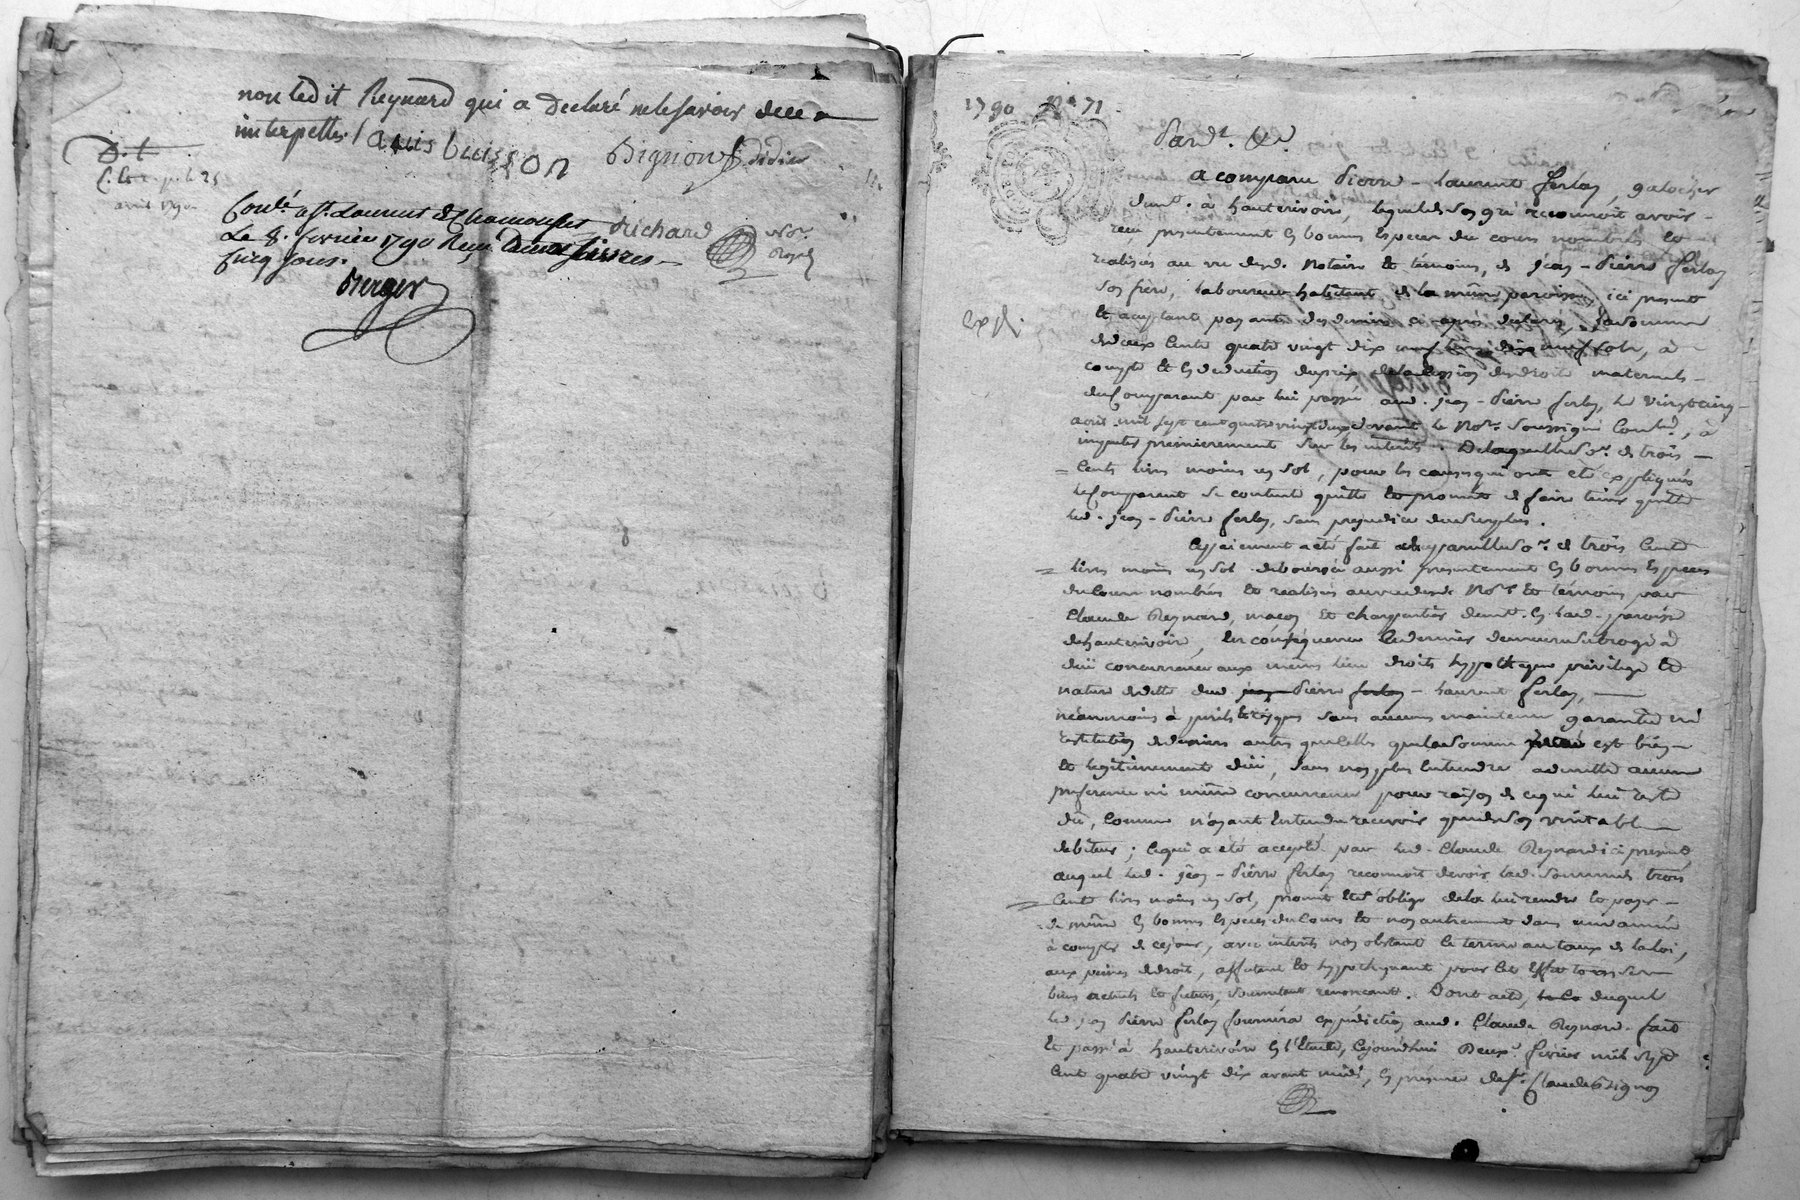 non ledit Reynard qui a declaré ne le savoir de ce
interpellé / Louis buisson Pignon Didier
Conlé à st Laurent de Chamousset Richard Nore
Le 8. fevrier 1790 Reçu livres Royal
cinq sous.
Berger
avril 1790
1790 No 71
Pard.t &a
a comparu Pierre - Laurent ferlay, galochier
demt. à hauterivoire, lequel de son gré reconnoit avoir
reçu presentement en bonnes especes du cours nombrées et
realisées au vu desd. Notaire et témoins, de jean - Pierre ferlay
son frère, laboureur habitant de la même paroisse, ici present
et aceptant payant des deniers ci après declarés, la somme
de deux cents quatre vingt dix neuf livres dix neuf sols, à
compte et en deduction du prix de la cession des droits maternels
du comparant par lui passée aud. jean - Pierre ferlay, le vingt cinq
aoust mil sept cent quatre vingt devant le Nore. soussigné
imputés premierement sur les intérêts. De laquelle so.e de trois
cents livres moins un sol, pour les causes qui ont été expliqués
le comparant se contente quitte et promet de faire tenir quitte
led. jean - Pierre ferlay, sans prejudice du surplus.
Ce paiement a été fait de pareille so.e de trois cent
livres moins un sol deboursée aussi presentement en bonnes especes
du cours nombrées et realisées au vu desd. Nore et témoins par
Claude Reynard, maçon et charpentier demt. en lad. paroisse
de hauterivoire, en conséquence ce dernier demeure subrogé a
due concurrence aux mêmes lieu droits hypotheque privilege et
nature de dette dud. Pierre - Laurent ferlay,
néanmoins à perils et risques sans aucune maintenue garantie ni
restitution de deniers autres que celles que la somme est bien
et legitimement due, sans non plus entendre admettre aucune
preference ni même concurrence pour raison de ce qui lui reste
dû, comme n'ayant entendu recevoir que de son veritable
debiteur; ce qui a été acepté par led. Claude Reynard ici present,
auquel led. jean - Pierre ferlay reconnoit devoir lad. somme de trois
cent livres moins un sol, promet et s'oblige de la lui rendre et payer
de même en bonnes especes du cours et non autrement dans une année
à compter de ce jour, avec intérêts non obstant le terme au taux de la loi,
aux peines de droit, affectant et hypothequant pour cet effet tous ses
biens actuels et futurs, soumettant renonceant. Dont acte, duquel
led. jean Pierre ferlay fournira expedition aud. Claude Reynard. fait
et passé à hauterivoire en l'étude, cejourdhui Deux fevrier mil sept
cent quatre vingt dix avant midi, en presence de sr. Claude Pignon